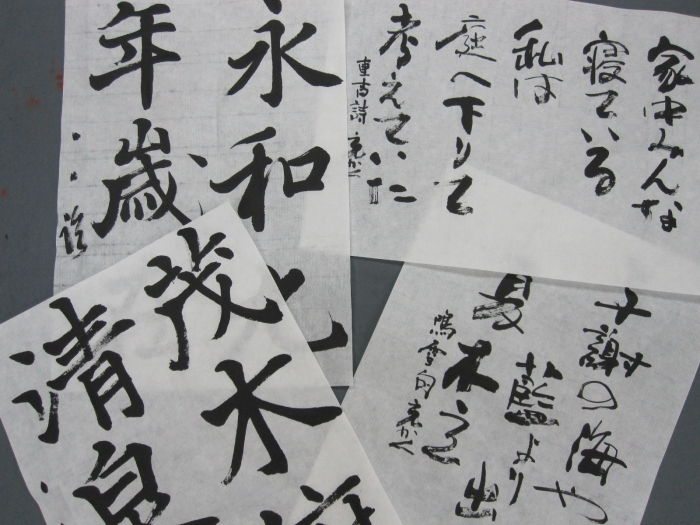 永和九
年歳
家中みんな
寝ている
私は
庭へ下りて
考えていた
茂木
清泉
謝の海や
藍より
出
夏木立
鳴雪句